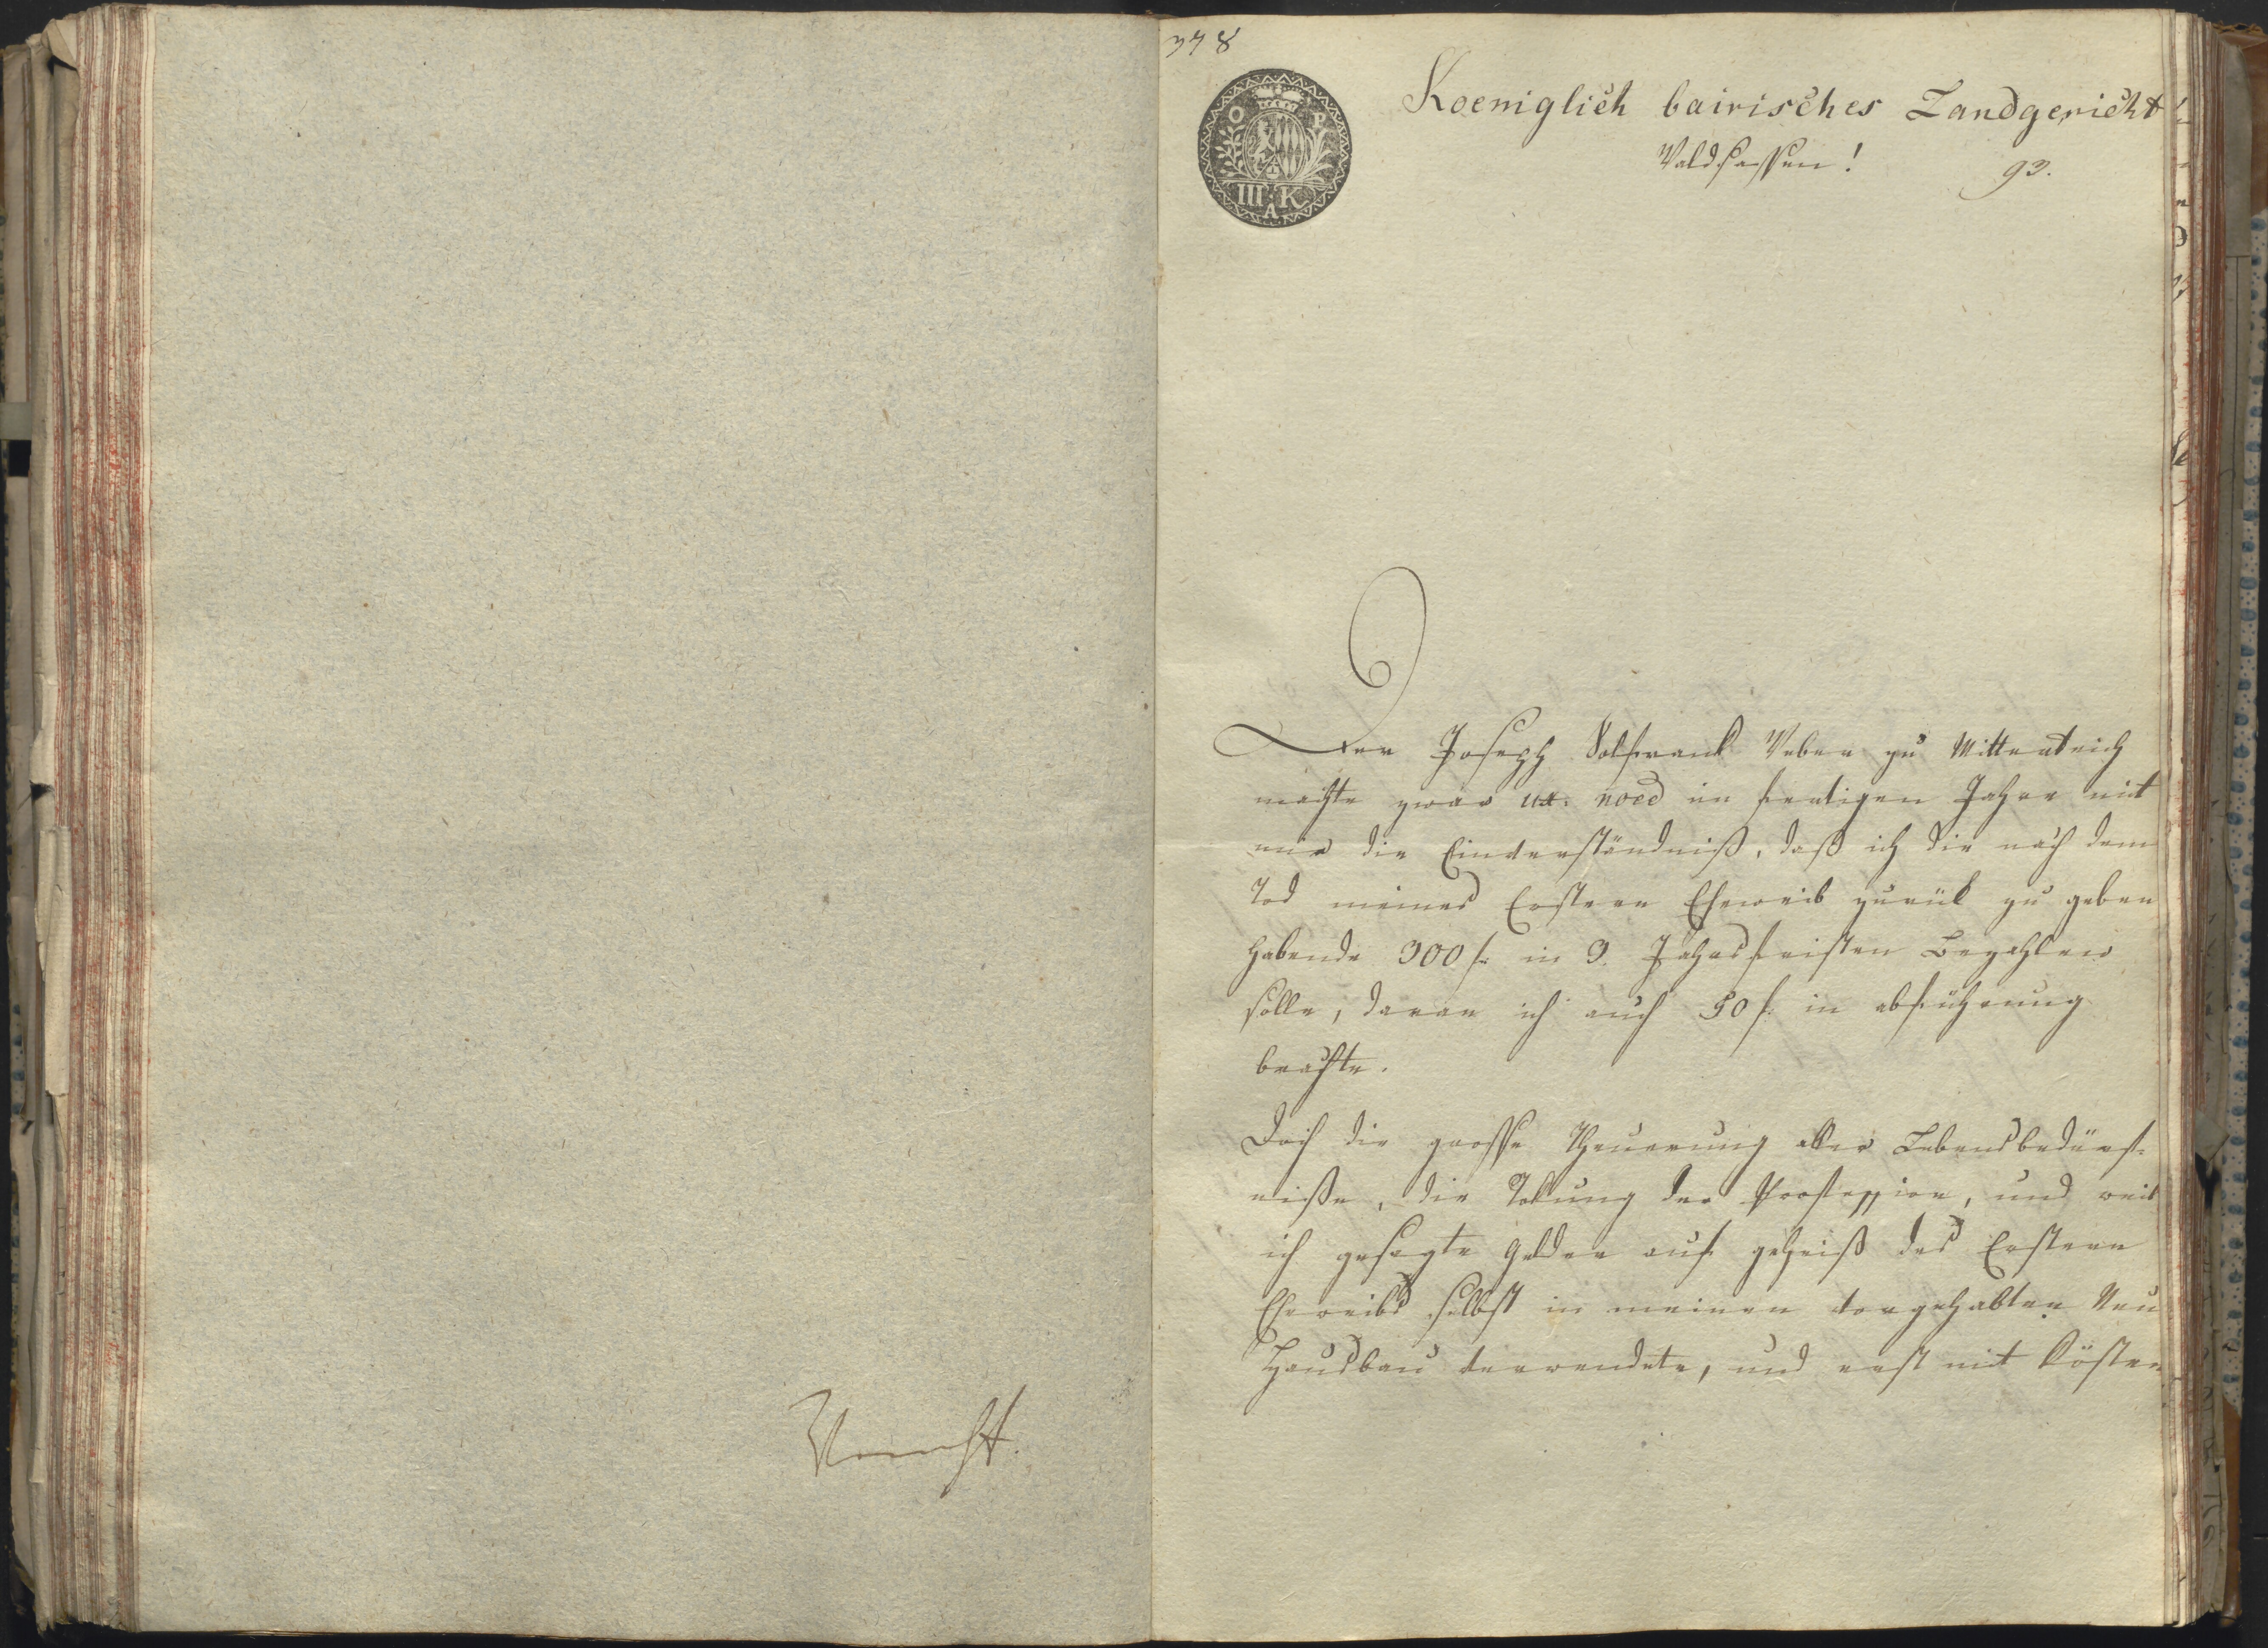 378
O P
III K
A
Koeniglich bairisches Landgericht
Waldsassen!
93.
Der Joseph Volfrank Weber zu Mitterteich
machte zwar ux. noe͞ im heutigen Jahre mit
mir die Einverständniß, daß ich die nach dem
Tod meines Erstern Eheweib zurük zu geben
habende 300 f. in 3. Jahrsfristen Bezahlen
solle, daran ich auch 50 f. in abführung
brachte.
Doch die grosse Theuerung aller Lebensbedürf-
niße, die Stokung der Profession, und weil
ich gesagte Gelder auf geheiß des Erstern
Eheweibs selbst in meinen vorgehabten Neu
Hausbau verwendete, und erst mit Kösten